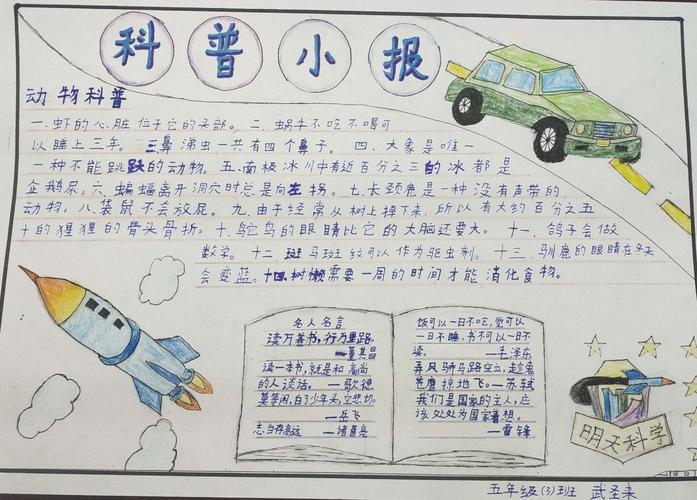 科普小报
动物科普
一、虾的心脏位于它的头部。二、蜗牛不吃不喝可
以睡上三年。三鼻涕虫一共有四个鼻子。四、大象是唯一
一种不能跳跃的动物。五、南极冰川中有近百分之三的冰都是
企鹅尿。六、蝙蝠离开洞穴时总是向左拐。七、长颈鹿是一种没有声带的
动物。八、袋鼠不会放屁。九、由于经常从树上掉下来,所以有大约百分之五
十的猩猩的骨头骨折。十、鸵鸟的眼睛比它的大脑还要大。十一、鸽子会做
数学。十二、斑马斑纹可以作为驱虫剂。十三、驯鹿的眼睛在冬天
会变蓝。十四、树懒需要一周的时间才能消化食物。
名人名言
读万卷书,行万里路。
—董其昌
读一本书,就是和高尚
的人谈话。—歌德
莫等闲,白了少年头,空悲切。
—岳飞
志当存高远 —诸葛亮
饭可以一日不吃,觉可以
一日不睡,书不可以一日不
读。 —毛泽东
弄风骄马跑空立,趁兔
苍鹰掠地飞。—苏轼
我们是国家的主人,应
该处处为国家着想。
—雷锋
明天科学
五年级(3)班 武圣来